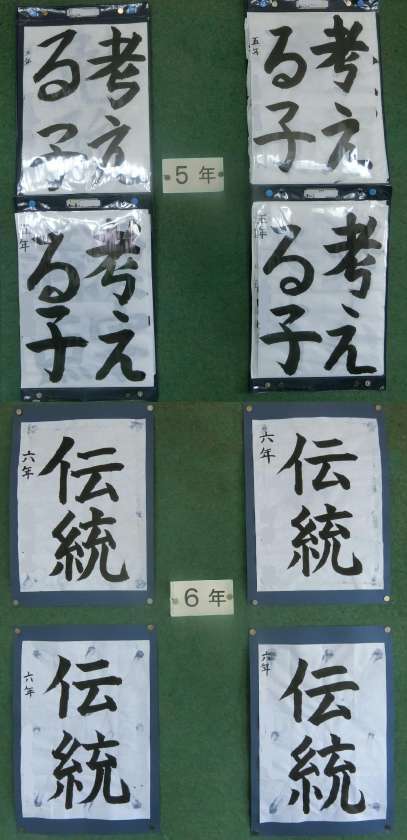 考え
る子
考え
る子
五年
5年
考え
る子
五年
考え
る子
五年
伝統
六年
伝統
六年
6年
伝統
六年
伝統
六年